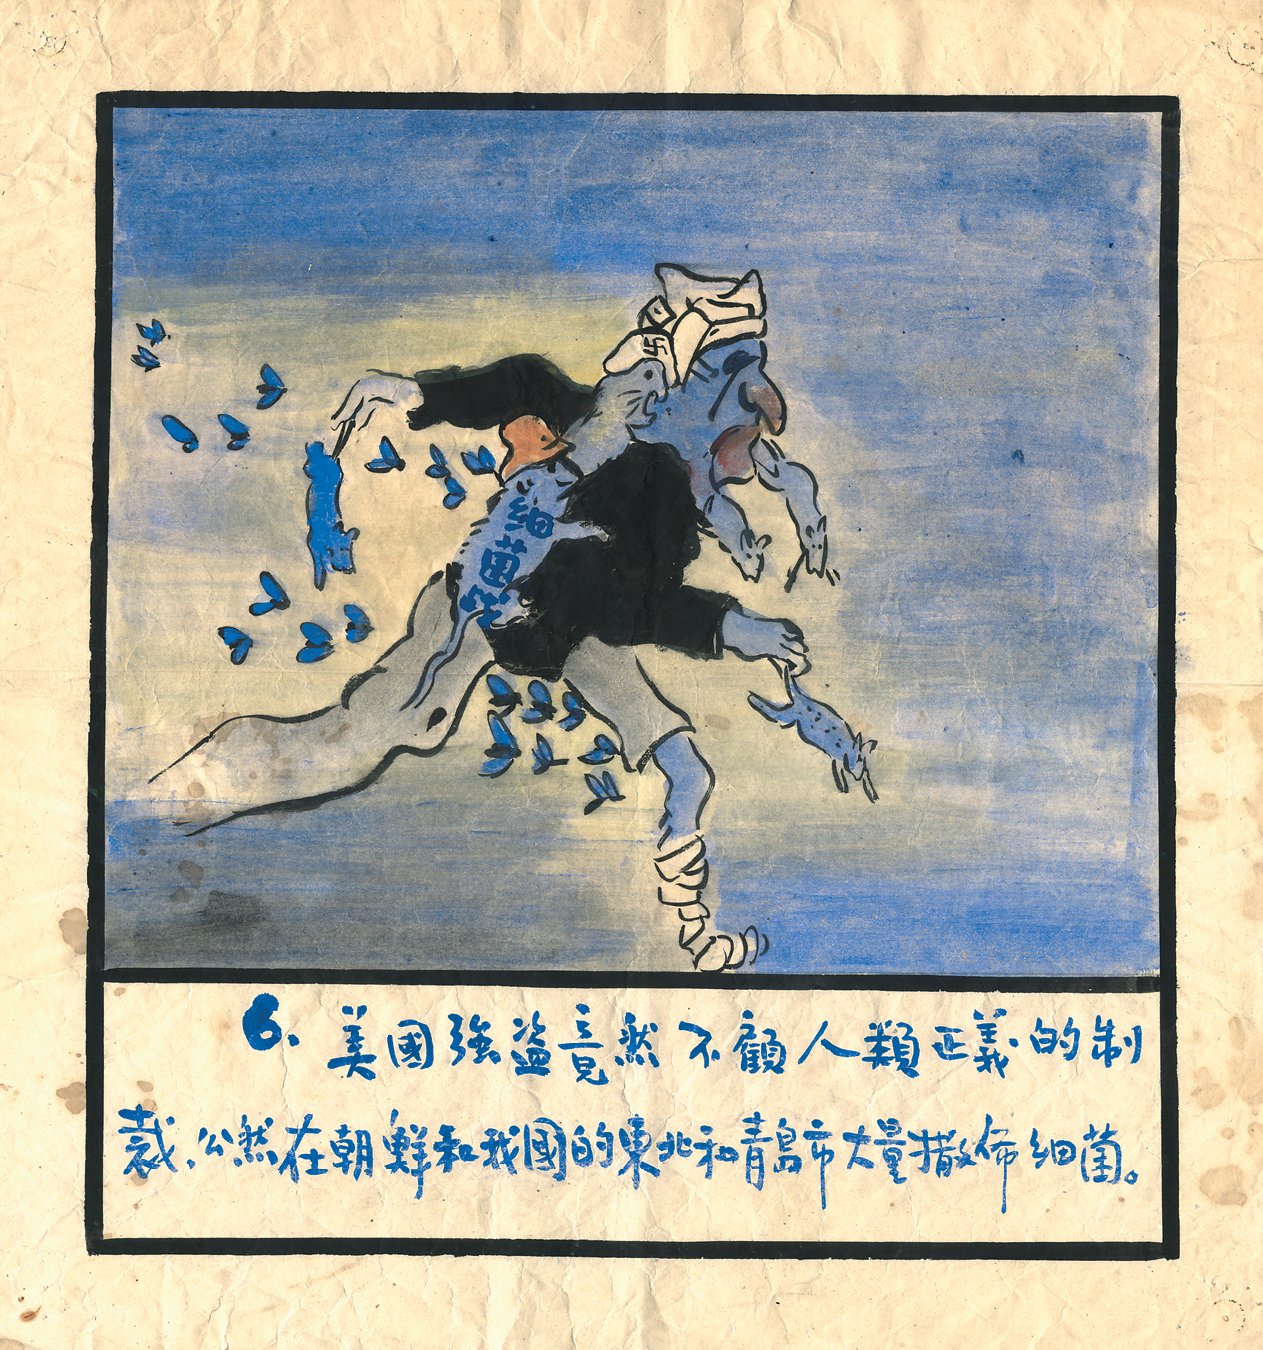 细菌弹
6. 美國強盗竟然不顧人類正義的制
裁，公然在朝鮮和我國的東北和青島市大量撒佈细菌。